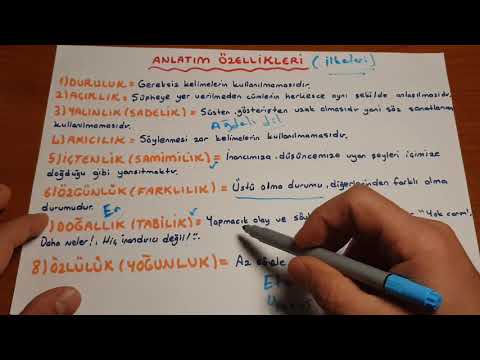 ANLATIM ÖZELLIKLERI (ilkeleri)
1) DURULUK = Gereksiz kelimelerin kullanılmamasıdır.
2) AÇIKLIK = Şüpheye yer verilmeden cümlenin herkesce aynı şekilde anlaşılmasıdır.
3) YALINLIK (SADELİK) = Süsten, gösterişten uzak olmasıdır yani söz sanatların
kullanılmamasıdır. Ağdalı dil
4) AKICILIK = Söylenmesi zor kelimelerin kullanılmamasıdır.
5) İÇTENLİK (SAMİMİLİK) = İnancımıza, düşüncemize uyan şeyleri içimize
doğduğu gibi yansıtmaktır.
6) ÖZGÜNLÜK (FARKLILIK) = Üstü olma durumu, diğerlerinden farklı olma
durumudur. Er
) DOĞALLIK (TABİLİK) = Yapmacık olay ve "Yok canım".
Daha neler!, Hiç inandırıcı değil!
8) ÖZLÜLÜK (YOĞUNLUK) = Az